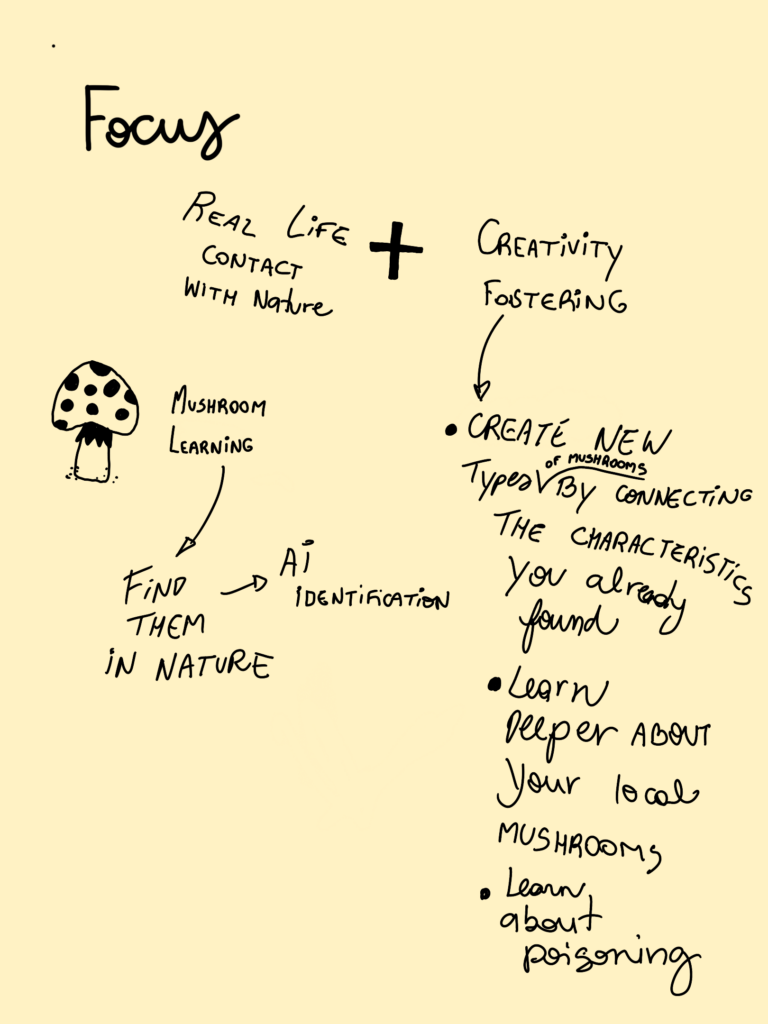 Focus
REAL LIFE
CONTACT
WITH Nature
+
CREATIVITY
FOSTERING
MUSHROOM
LEARNING
FIND
THEM
IN NATURE
AI
IDENTIFICATION
• CREATE NEW
OF MUSHROOMS
Types BY CONNECTING
THE CHARACTERISTICS
you already
found
• Learn
Deeper ABOUT
your local
MUSHROOMS
• Learn
about
poisoning